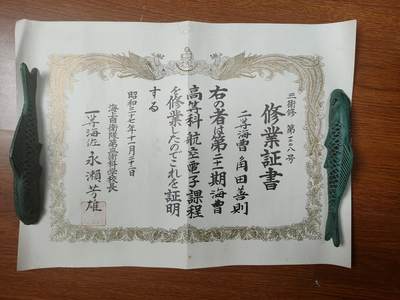 三術修 第二二八号
修業証書
二等海曹 角田善則
右の者は第二二期海曹
高等科航空電子課程
を修業したのでこれを証明
する
昭和三十七年十二月二十一日
海上自衛隊第三術科学校長
一等海佐 永瀬芳雄